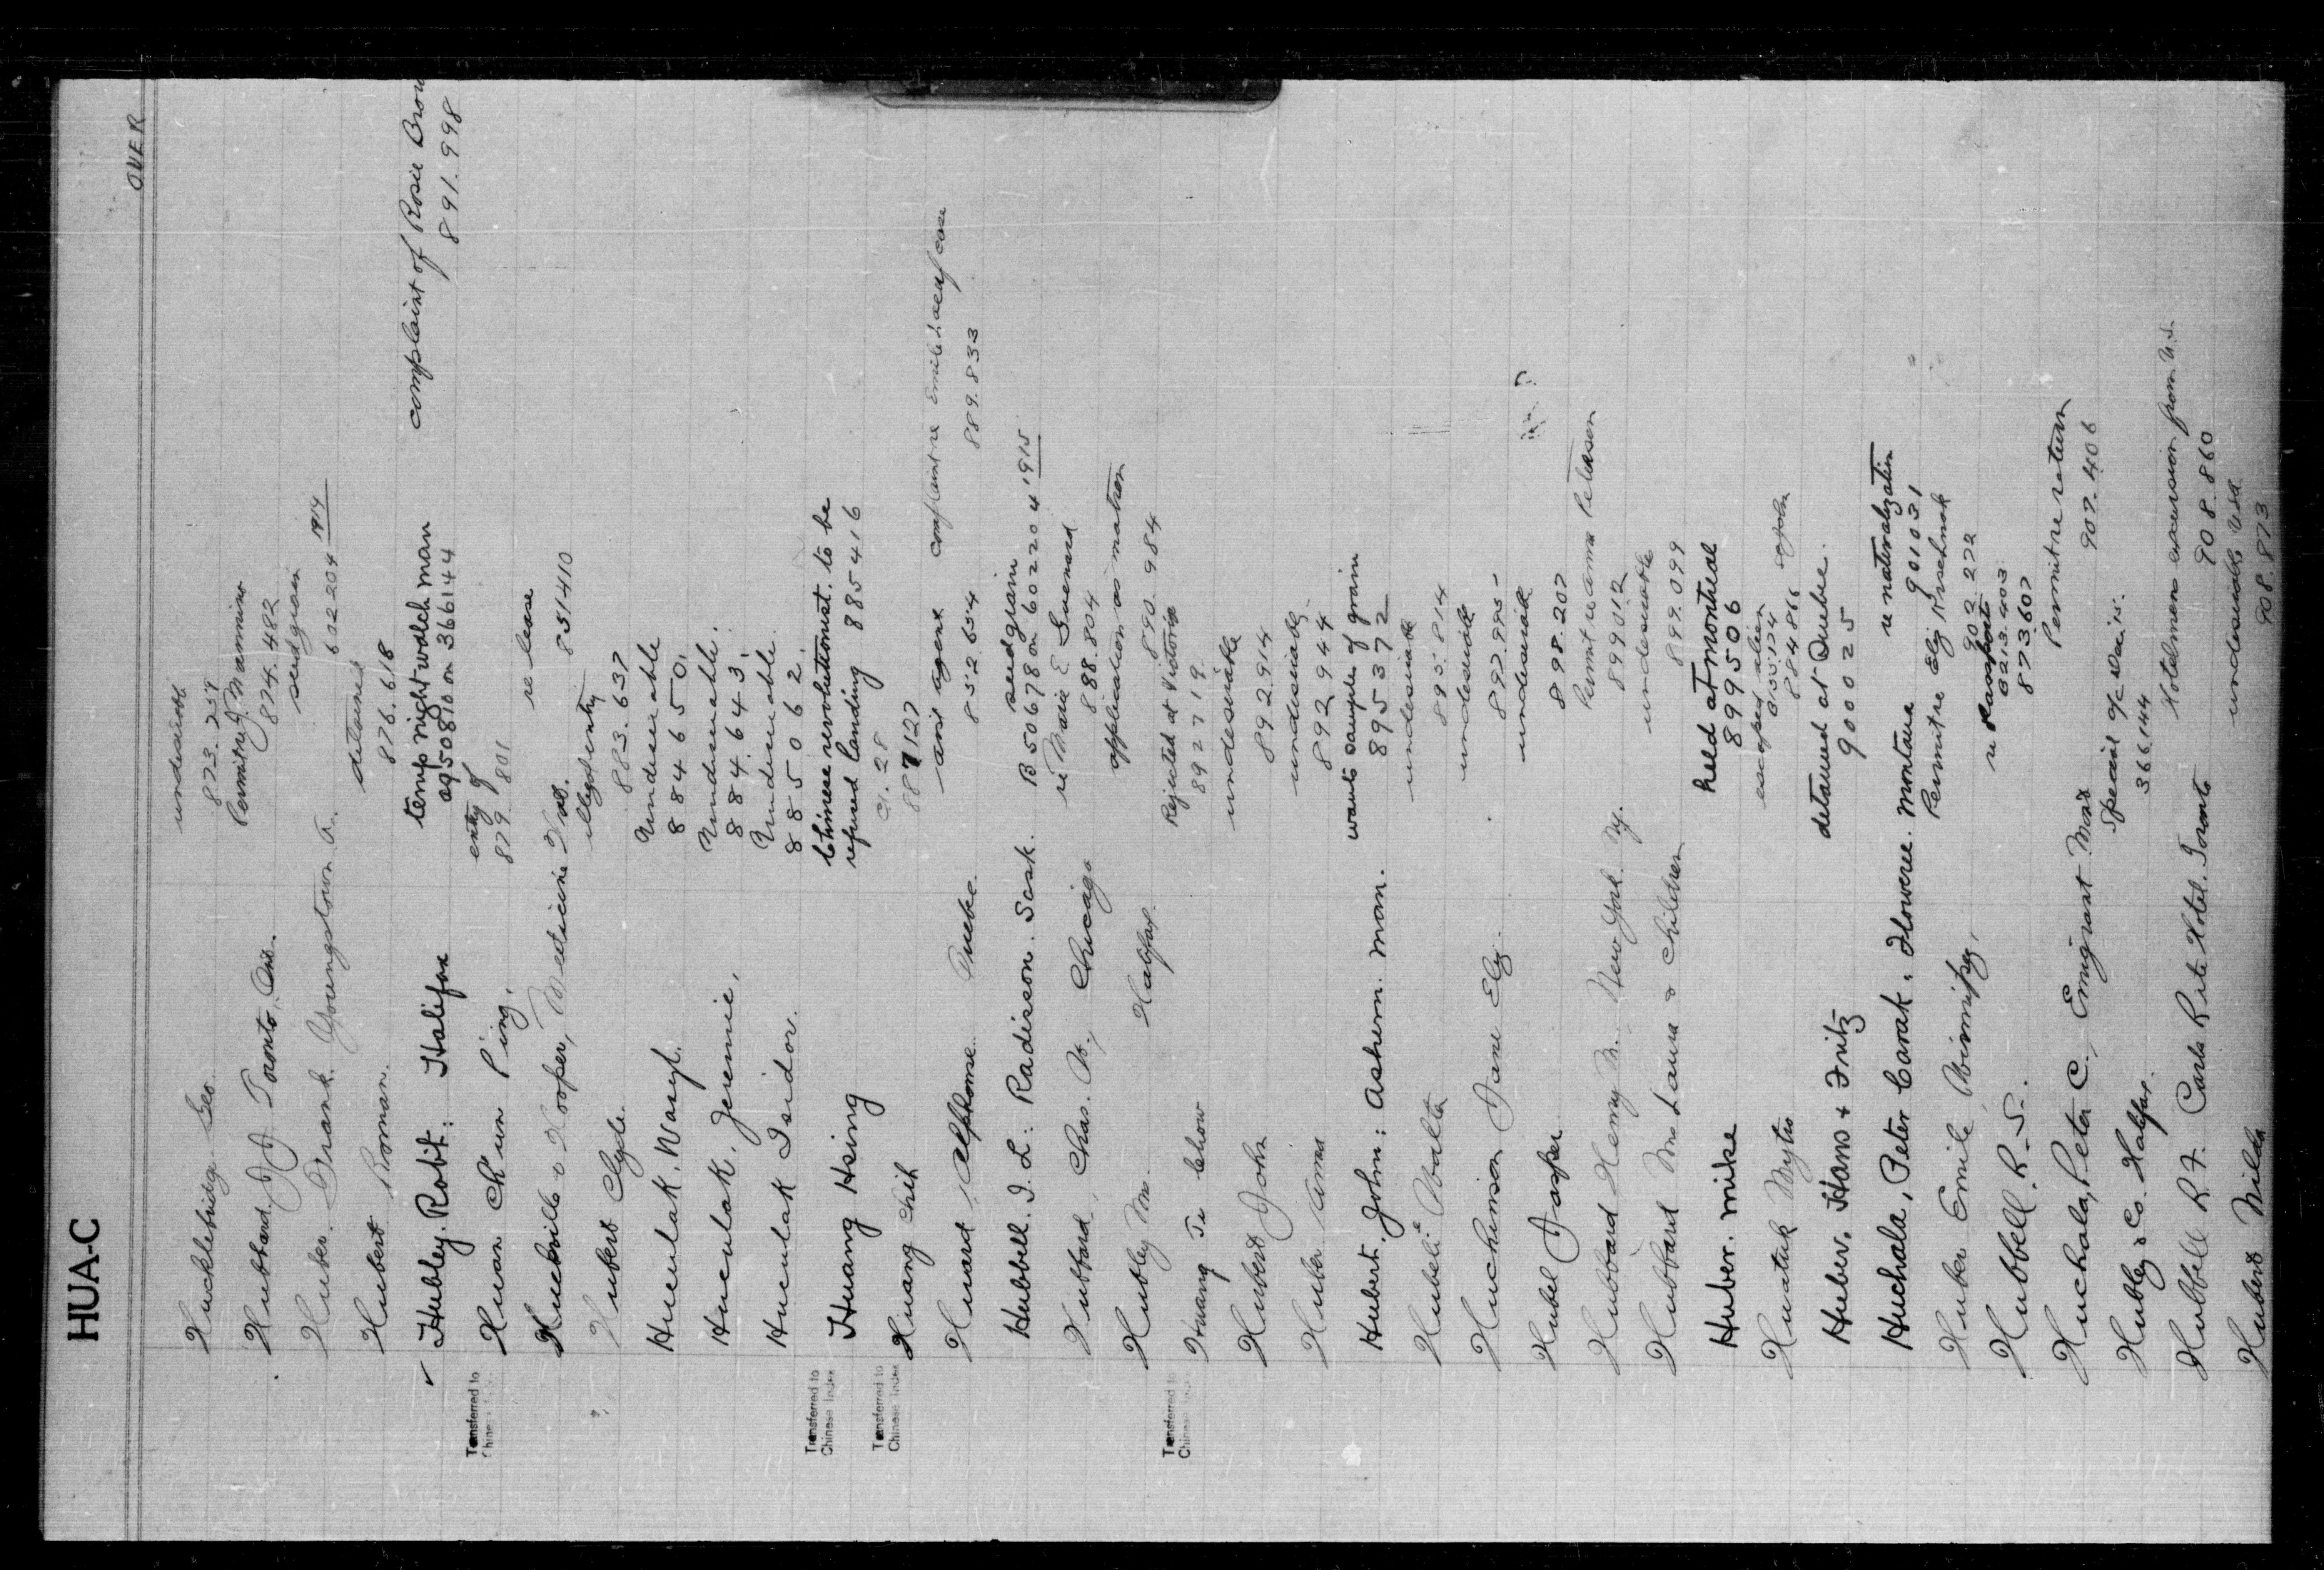 HUA-C
OVER
Hucklebridge Geo. undesirable
873.259
Hubbard J J Toronto, Ont. Permit re J. Mannino
874.482
Huber. Frank. Youngstown A. seed grain
602204 1914
Hubert Roman. detained
876.618
✓ Hubley. Robt: Halifax temp night watch man complaint of Rosie Brow
ag 50810 on 366144 891.998
Transferred to
Chinese
Huan Ch'un Ping. entry of
879.801
& Hooper, Medicine Hat. re lease
851410
Hubert Clyde. illegal entry
883.637
Huculak. Wasyl. Undesirable
884650.
Huculak. Jerennie. Undesirable.
884.643.
Huculak Isidor. Undesirable.
885062.
Transferred to
Chinese Index
Huang Hsing Chinese revolutionist. to be
refused landing 885416
Transferred to
Chinese Index
Huang Chih C1.28
887127
Huard, Alphonse. Quebec. asst agent complaint re Emile case
852.654 889.833
Hubbell. I. L: Radisson. Sask. seed grain
B 50678 on 602204 1915
Hubbard, Chas. W., Chicago re Marie E. Guenard
888.804
Hubley Mr. Halifax. application as matron
890.984
Transferred to
Chinese
Huang Te Chow Rejected at Victoria
892719.
Hubert John undesirable
892.914
Huber Anna undesirable.
892944
Hubert. John; Ashern. Man. wants samples of grain
895372
Hubeli Walta undesirable
895.814
Huchinson Jane Eliz. undesirable
897.995
Hubel Jasper undesirable
898.207
Hubbard Henry M. New York. Ny. Permit re Anna Peterson
899012
Hubbard Mrs Laura & Children undesirable
899.099
Huber. Mike held at Montreal
899506
Huatuk Mytro escaped alien
884866
Huber. Hans & Fritz detained at Quebec.
900025
Huchala, Peter Carak. Floweree. Montana re naturalization
901031
Huber Emile Winnipeg. Permit re Eliz
902 272
Hubbell. R. S. re Passports
873607
Huchala, Peter C. Emigrant Mont Permit re return
907.406
Hubley & Co. Halifax. Special
366144
Hubbell R. F. Carls Rite Hotel. Toronto Hotelmens excursion from U.S.
908.860
Hubert Nilda undesirable USA
908.873